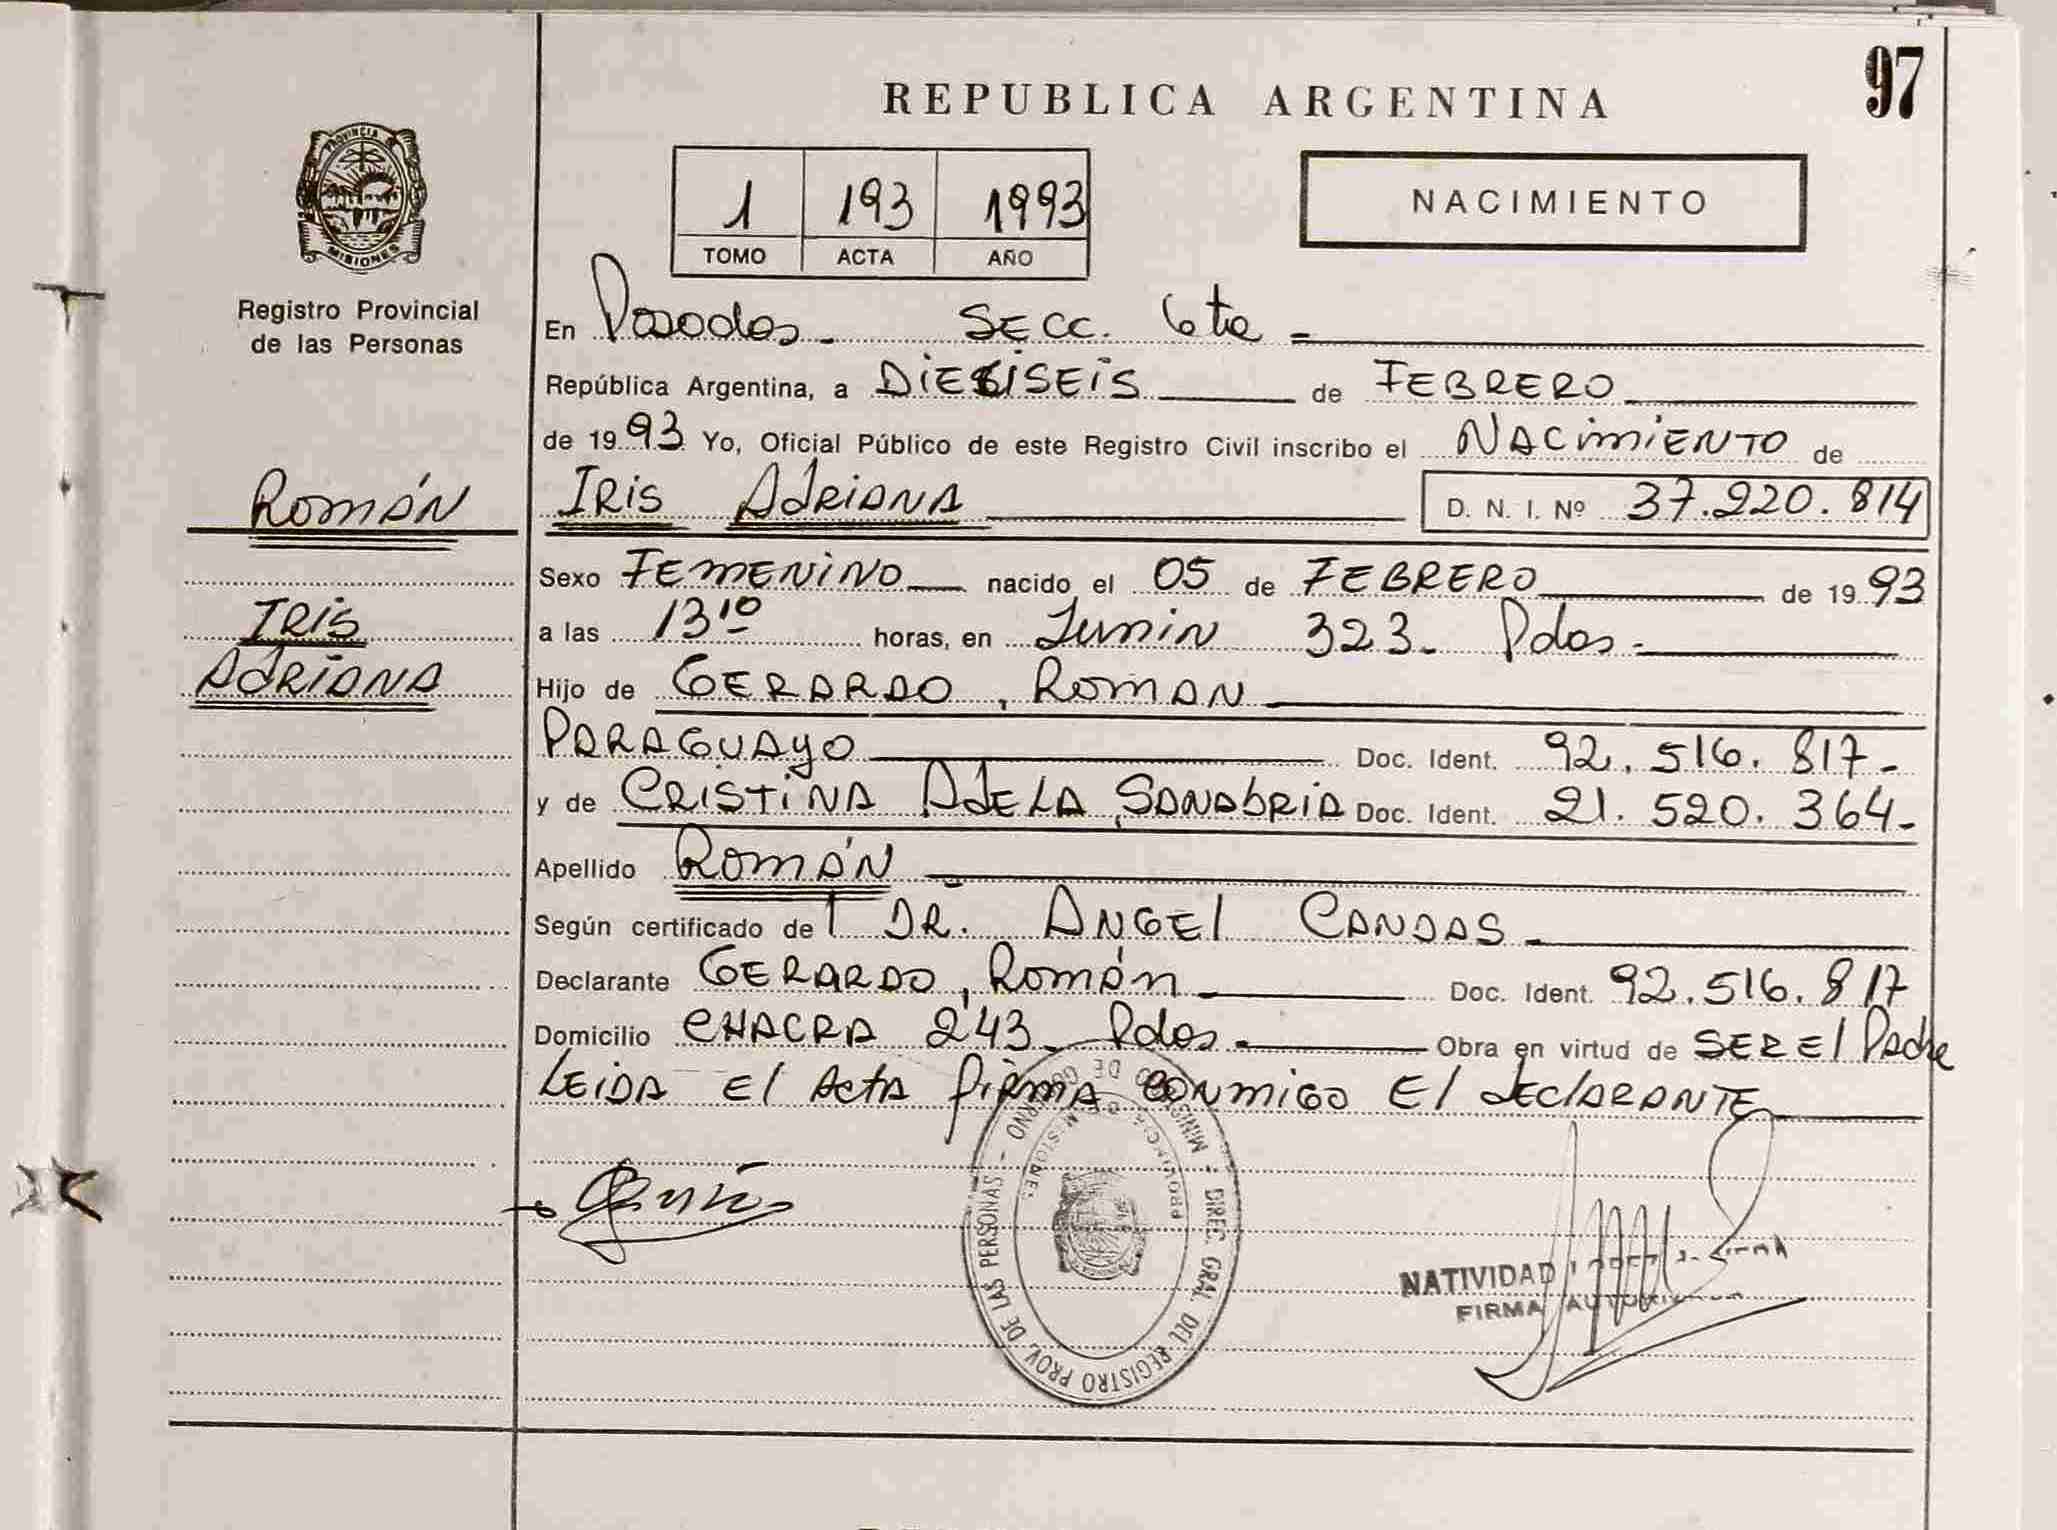 97
REPUBLICA ARGENTINA
PROVINCIA DE
MISIONES
Registro Provincial
de las Personas
1 193 1993
TOMO ACTA AÑO
NACIMIENTO
En Posadas - SECC. 6ta -
República Argentina, a DIECISEIS de FEBRERO
de 1993 Yo, Oficial Público de este Registro Civil inscribo el NACIMIENTO de
ROMÁN IRIS ADRIANA D. N. I. Nº 37.220.814
Sexo FEMENINO nacido el 05 de FEBRERO de 1993
IRIS a las 13 10 horas, en Junin 323 - Pdas -
ADRIANA Hijo de GERARDO, ROMAN
PARAGUAYO Doc. Ident. 92.516.817-
y de CRISTINA ADELA, SANABRIA Doc. Ident. 21.520.364-
Apellido ROMÁN
Según certificado de l DR. ANGEL CANDAS -
Declarante GERARDO, ROMÁN Doc. Ident. 92.516.817
Domicilio CHACRA 243 - Pdas - Obra en virtud de SER El Padre
LEIDA El Acta firma CONMIGO El declARANTE
MINISTERIO DE GOBIERNO - DIREC. GRAL. DEL REGISTRO PROV. DE LAS PERSONAS -
PROVINCIA DE MISIONES
NATIVIDAD
FIRMA AUTORIZADA